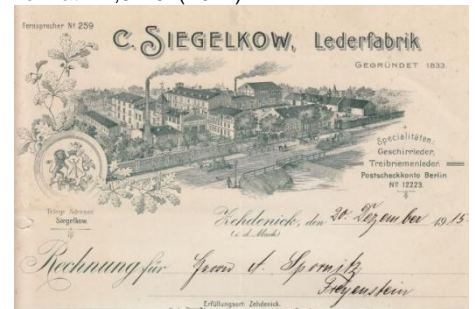 Fernsprecher Nº 259
C. SIEGELKOW, Lederfabrik
GEGRÜNDET 1833.
Specialitäten:
Geschirrleder,
Treibriemenleder.
Postscheckkonto Berlin
Nº 12223.
Telegr. Adresse:
Siegelkow.
Zehdenick, den 20. Dezember 1915
(i. d. Mark)
Rechnung für Herrn A. Spornitz
Freyenstein
Erfüllungsort Zehdenick.